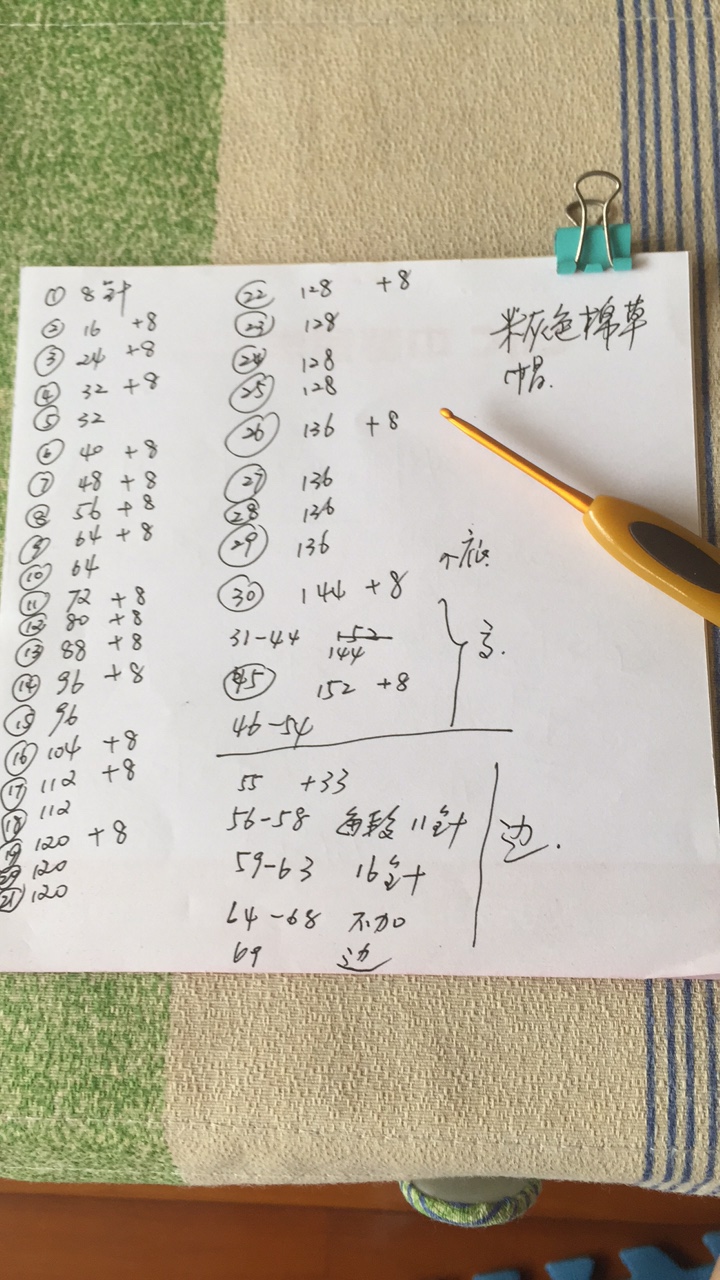 ① 8针
② 16 +8
③ 24 +8
④ 32 +8
⑤ 32
⑥ 40 +8
⑦ 48 +8
⑧ 56 +8
⑨ 64 +8
⑩ 64
⑪ 72 +8
⑫ 80 +8
⑬ 88 +8
⑭ 96 +8
⑮ 96
⑯ 104 +8
⑰ 112 +8
⑱ 112
⑲ 120 +8
⑳ 120
㉑ 120
㉒ 128 +8
㉓ 128
㉔ 128
㉕ 128
㉖ 136 +8
㉗ 136
㉘ 136
㉙ 136
㉚ 144 +8
31-44 152
144
㊺ 152 +8
46-54
高.
55 +33
56-58 每段11针
59-63 16针
64-68 不加
69 边
边.
米灰色棉草
帽.